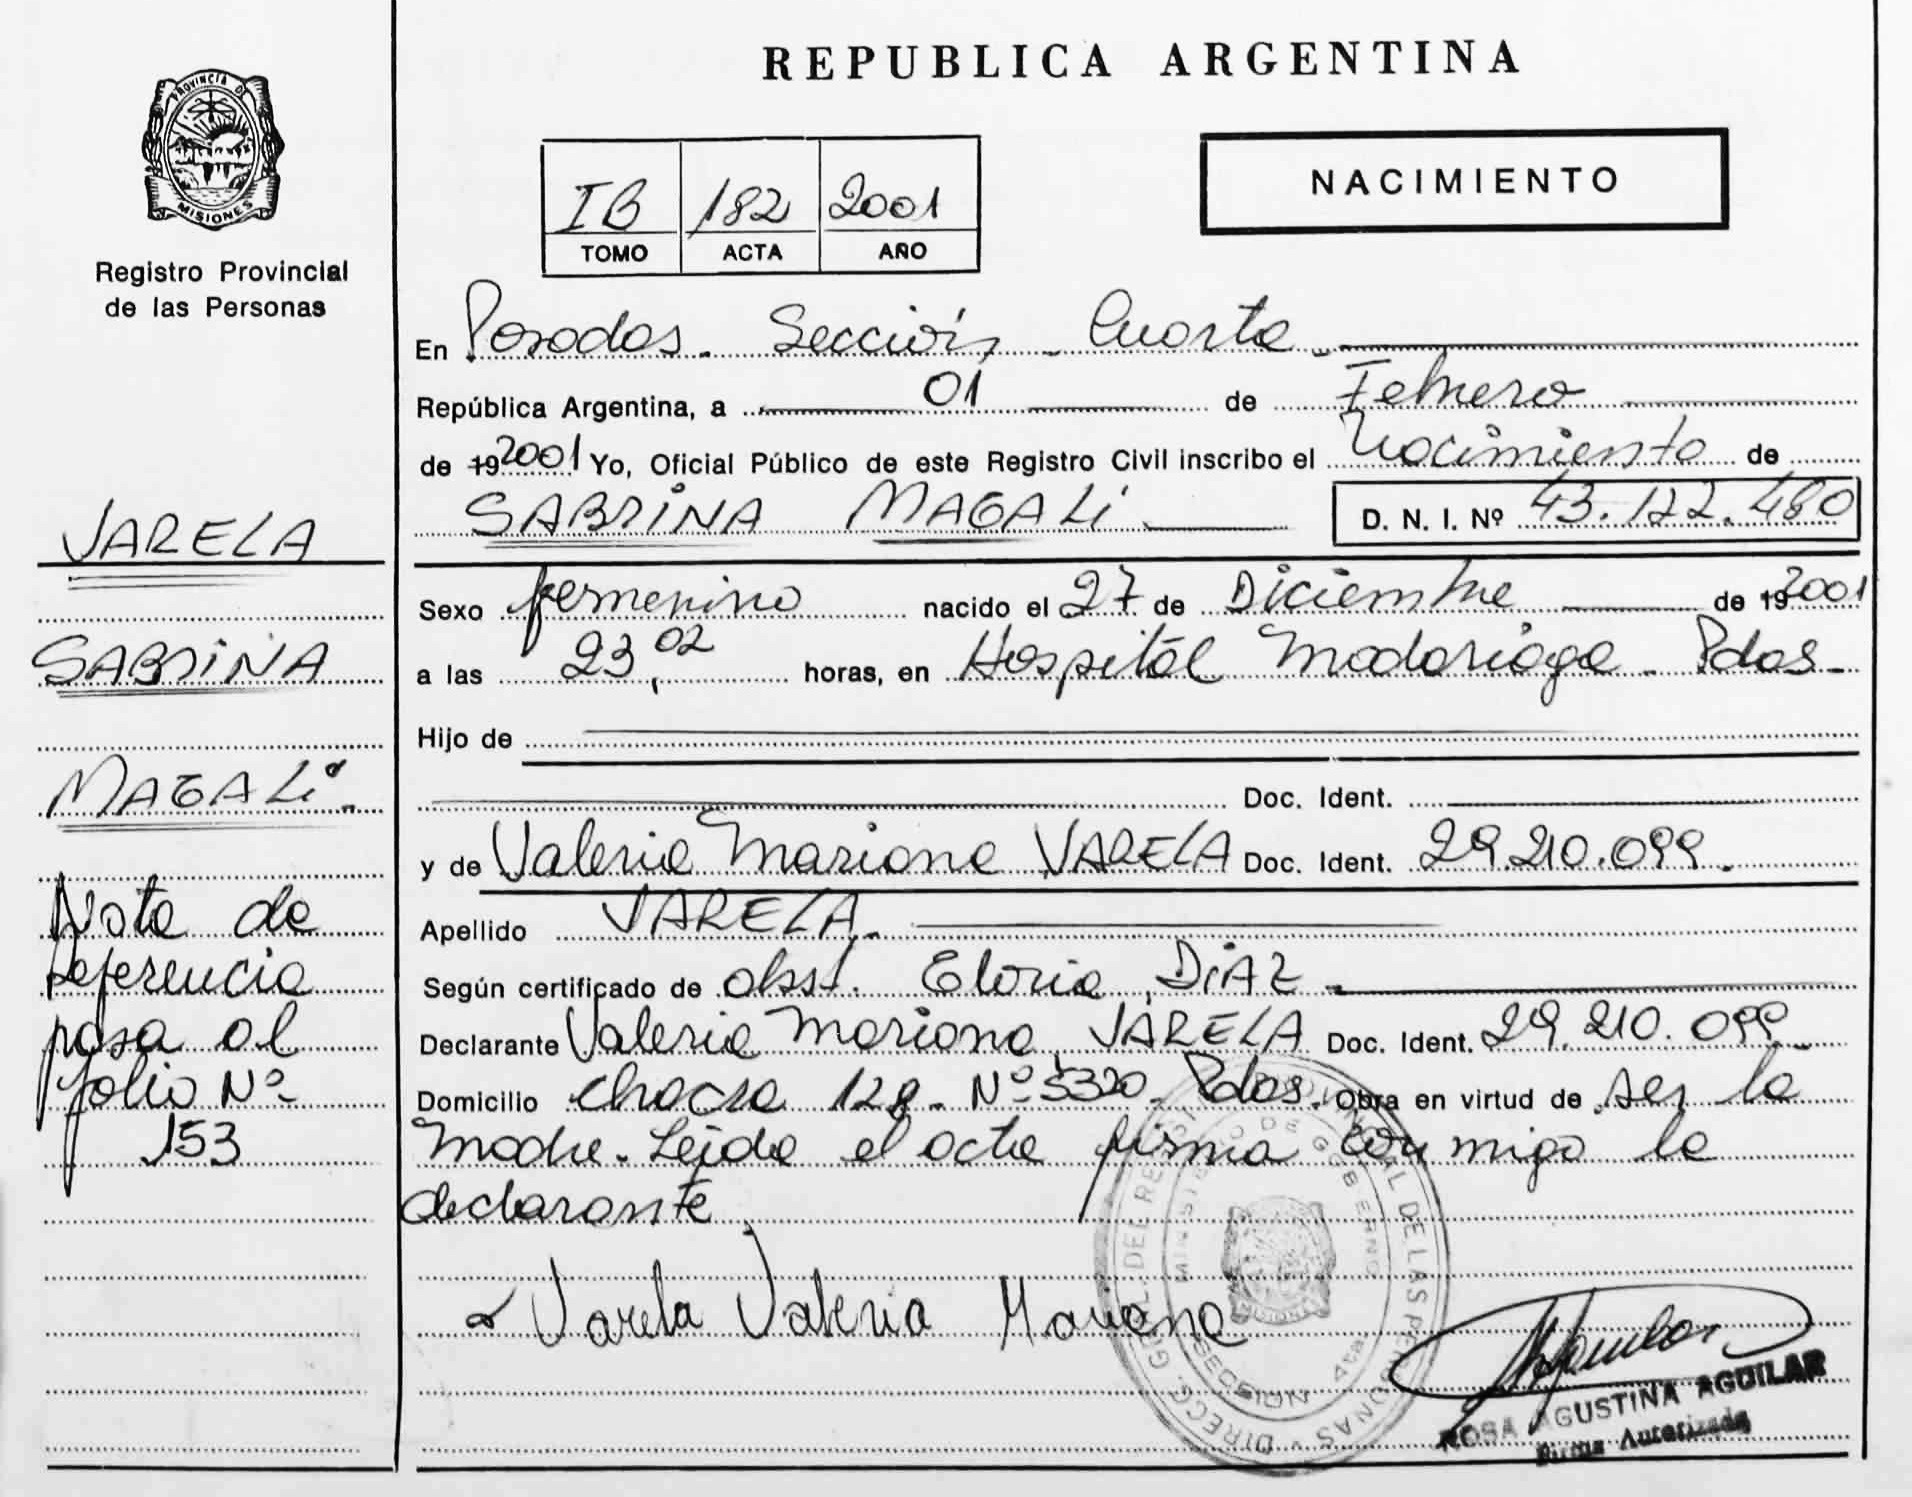 PROVINCIA DE
MISIONES
Registro Provincial
de las Personas
VARELA
SABRINA
MAGALí
Nota de
Referencia
pasa al
folio Nº
153
REPUBLICA ARGENTINA
IB 182 2001
TOMO ACTA AÑO
NACIMIENTO
En Posadas. Sección Cuarta
República Argentina, a 01 de Febrero
de 19 2001 Yo, Oficial Público de este Registro Civil inscribo el Nacimiento de
SABRINA MAGALí D. N. I. Nº 43.122.480
Sexo femenino nacido el 27 de Diciembre de 19 2001
a las 23,02 horas, en Hospital Madariaga - Pdas-
Hijo de
Doc. Ident.
y de Valeria Mariana VARELA Doc. Ident. 29.210.099.
Apellido VARELA.
Según certificado de obst. Gloria DiAZ
Declarante Valeria Mariana VARELA Doc. Ident. 29.210.099
Domicilio Chacra 128. Nº 5320. Pdas. Obra en virtud de ser la
Madre. Leida el acta firma conmigo la
declarante
Varela Valeria Mariana
DIRECC. GRAL. DEL REGISTRO PROVINCIAL DE LAS PERSONAS
MINISTERIO DE GOBIERNO
SECCION 4ta.
ROSA AGUSTINA AGUILAR
Firma Autorizada